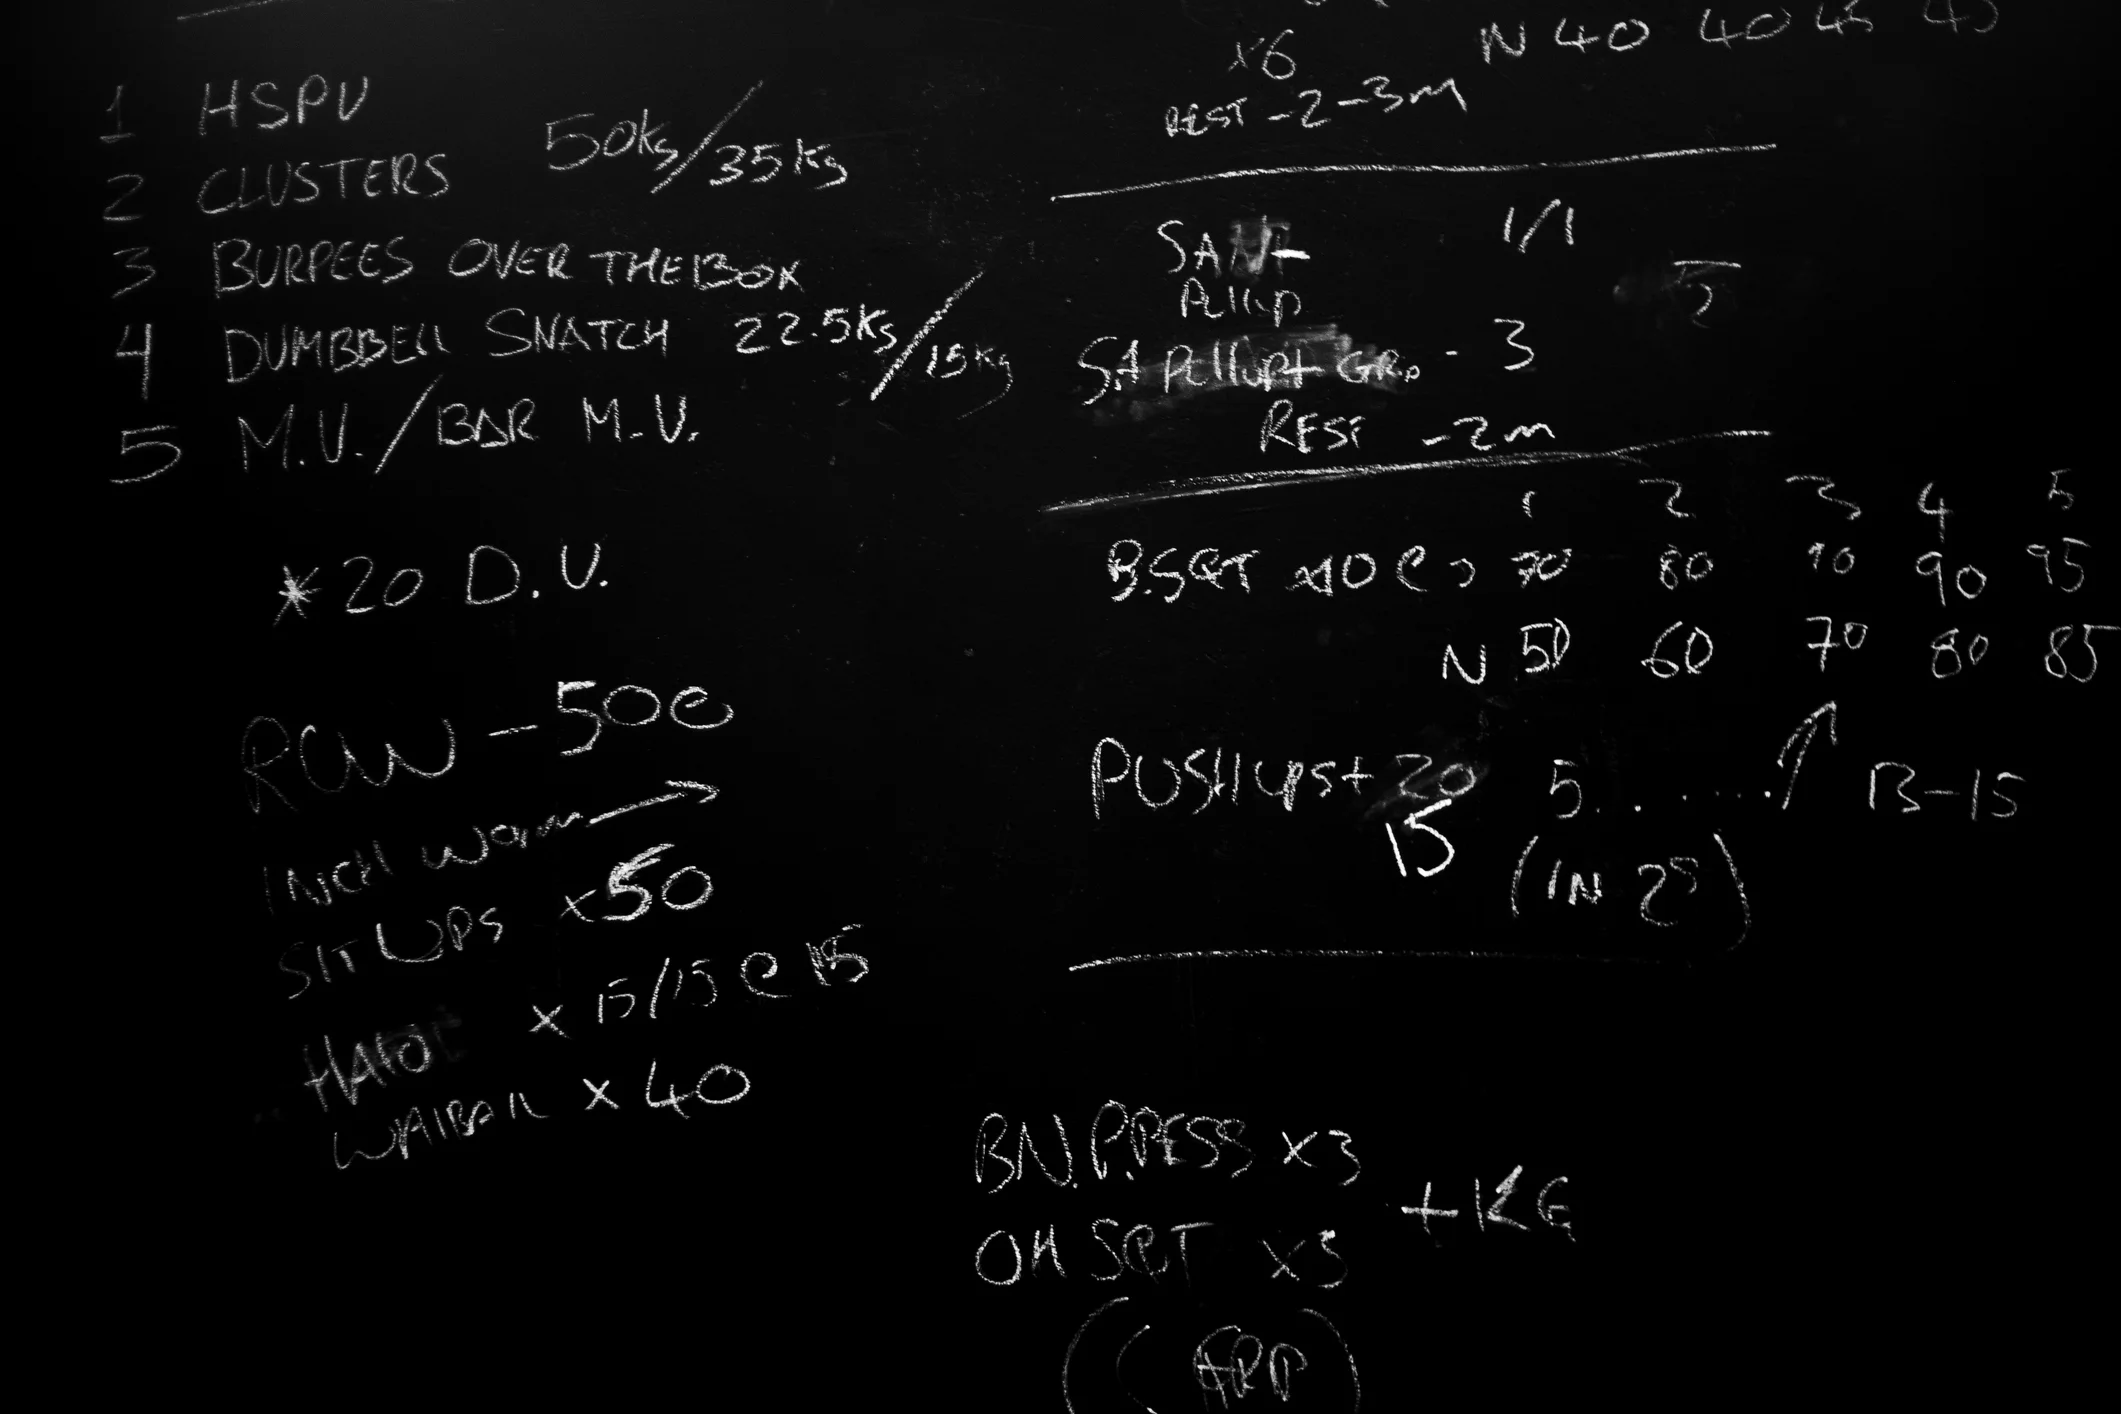 1 HSPU
2 CLUSTERS 50KG/35KG
3 BURPEES OVER THE BOX
4 DUMBBELL SNATCH 22.5KG/15KG
5 M.U./BAR M.U.
*20 D.U.
ROW - 500
INCH WORM
SIT UPS x50
x 15/15 @ 15
WALLBALL x 40
x6
N 40 40 45 45
REST - 2-3m
1/1
PULLUP
PULLUP + - 3
REST - 2m
1 2 3 4 5
B.SQT x10 @ 70 80 90 90 95
N 50 60 70 80 85
PUSHUPS + 20 5....... B-15
15 (IN 25)
BN.P.PRESS x3
+KE
OH SQT x3